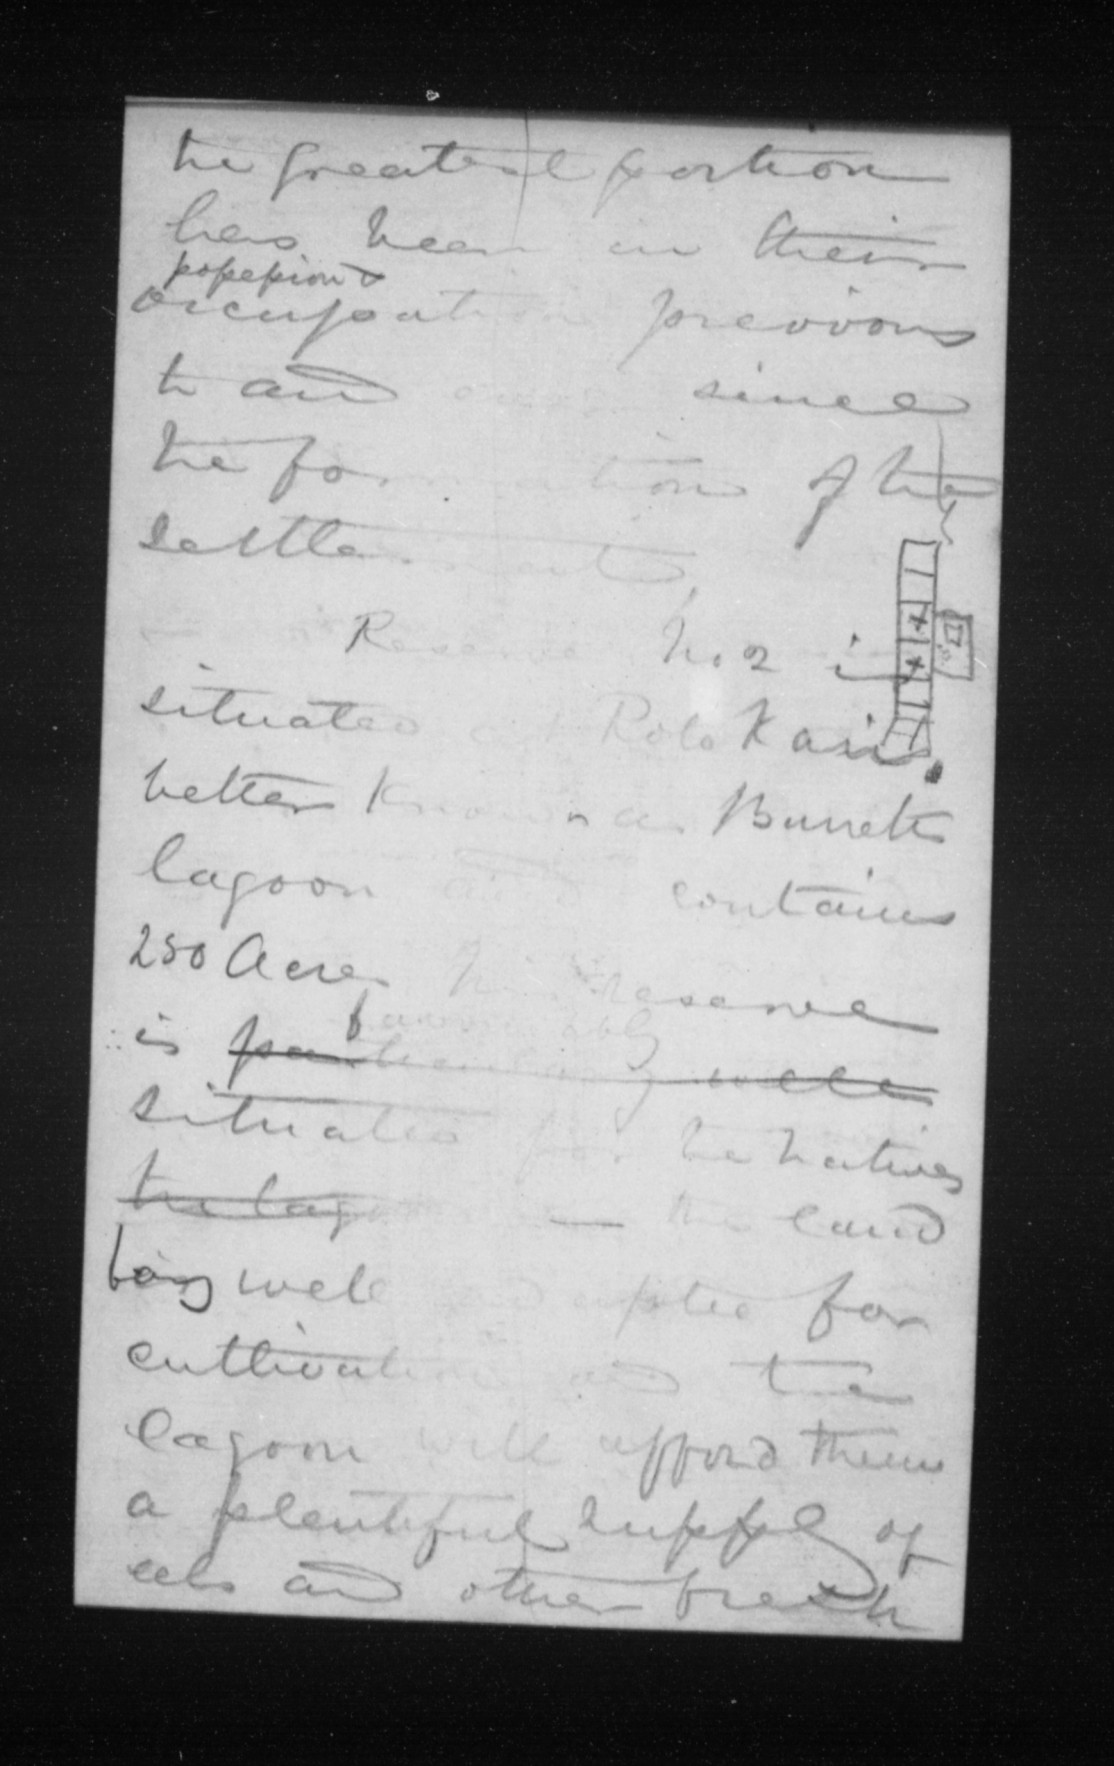 the greatest portion
has been in their
possession &
occupation previous
to and ever since
the formation of the
settlement,
Reserve No. 2 is
situated at
better known as Burnetts
lagoon and contains
250 Acres This reserve
favourably
is particularly well
situated for the Natives
the lagoon the land
being well adapted for
cultivation and the
lagoon will afford them
a plentiful supply of
eels and other fresh